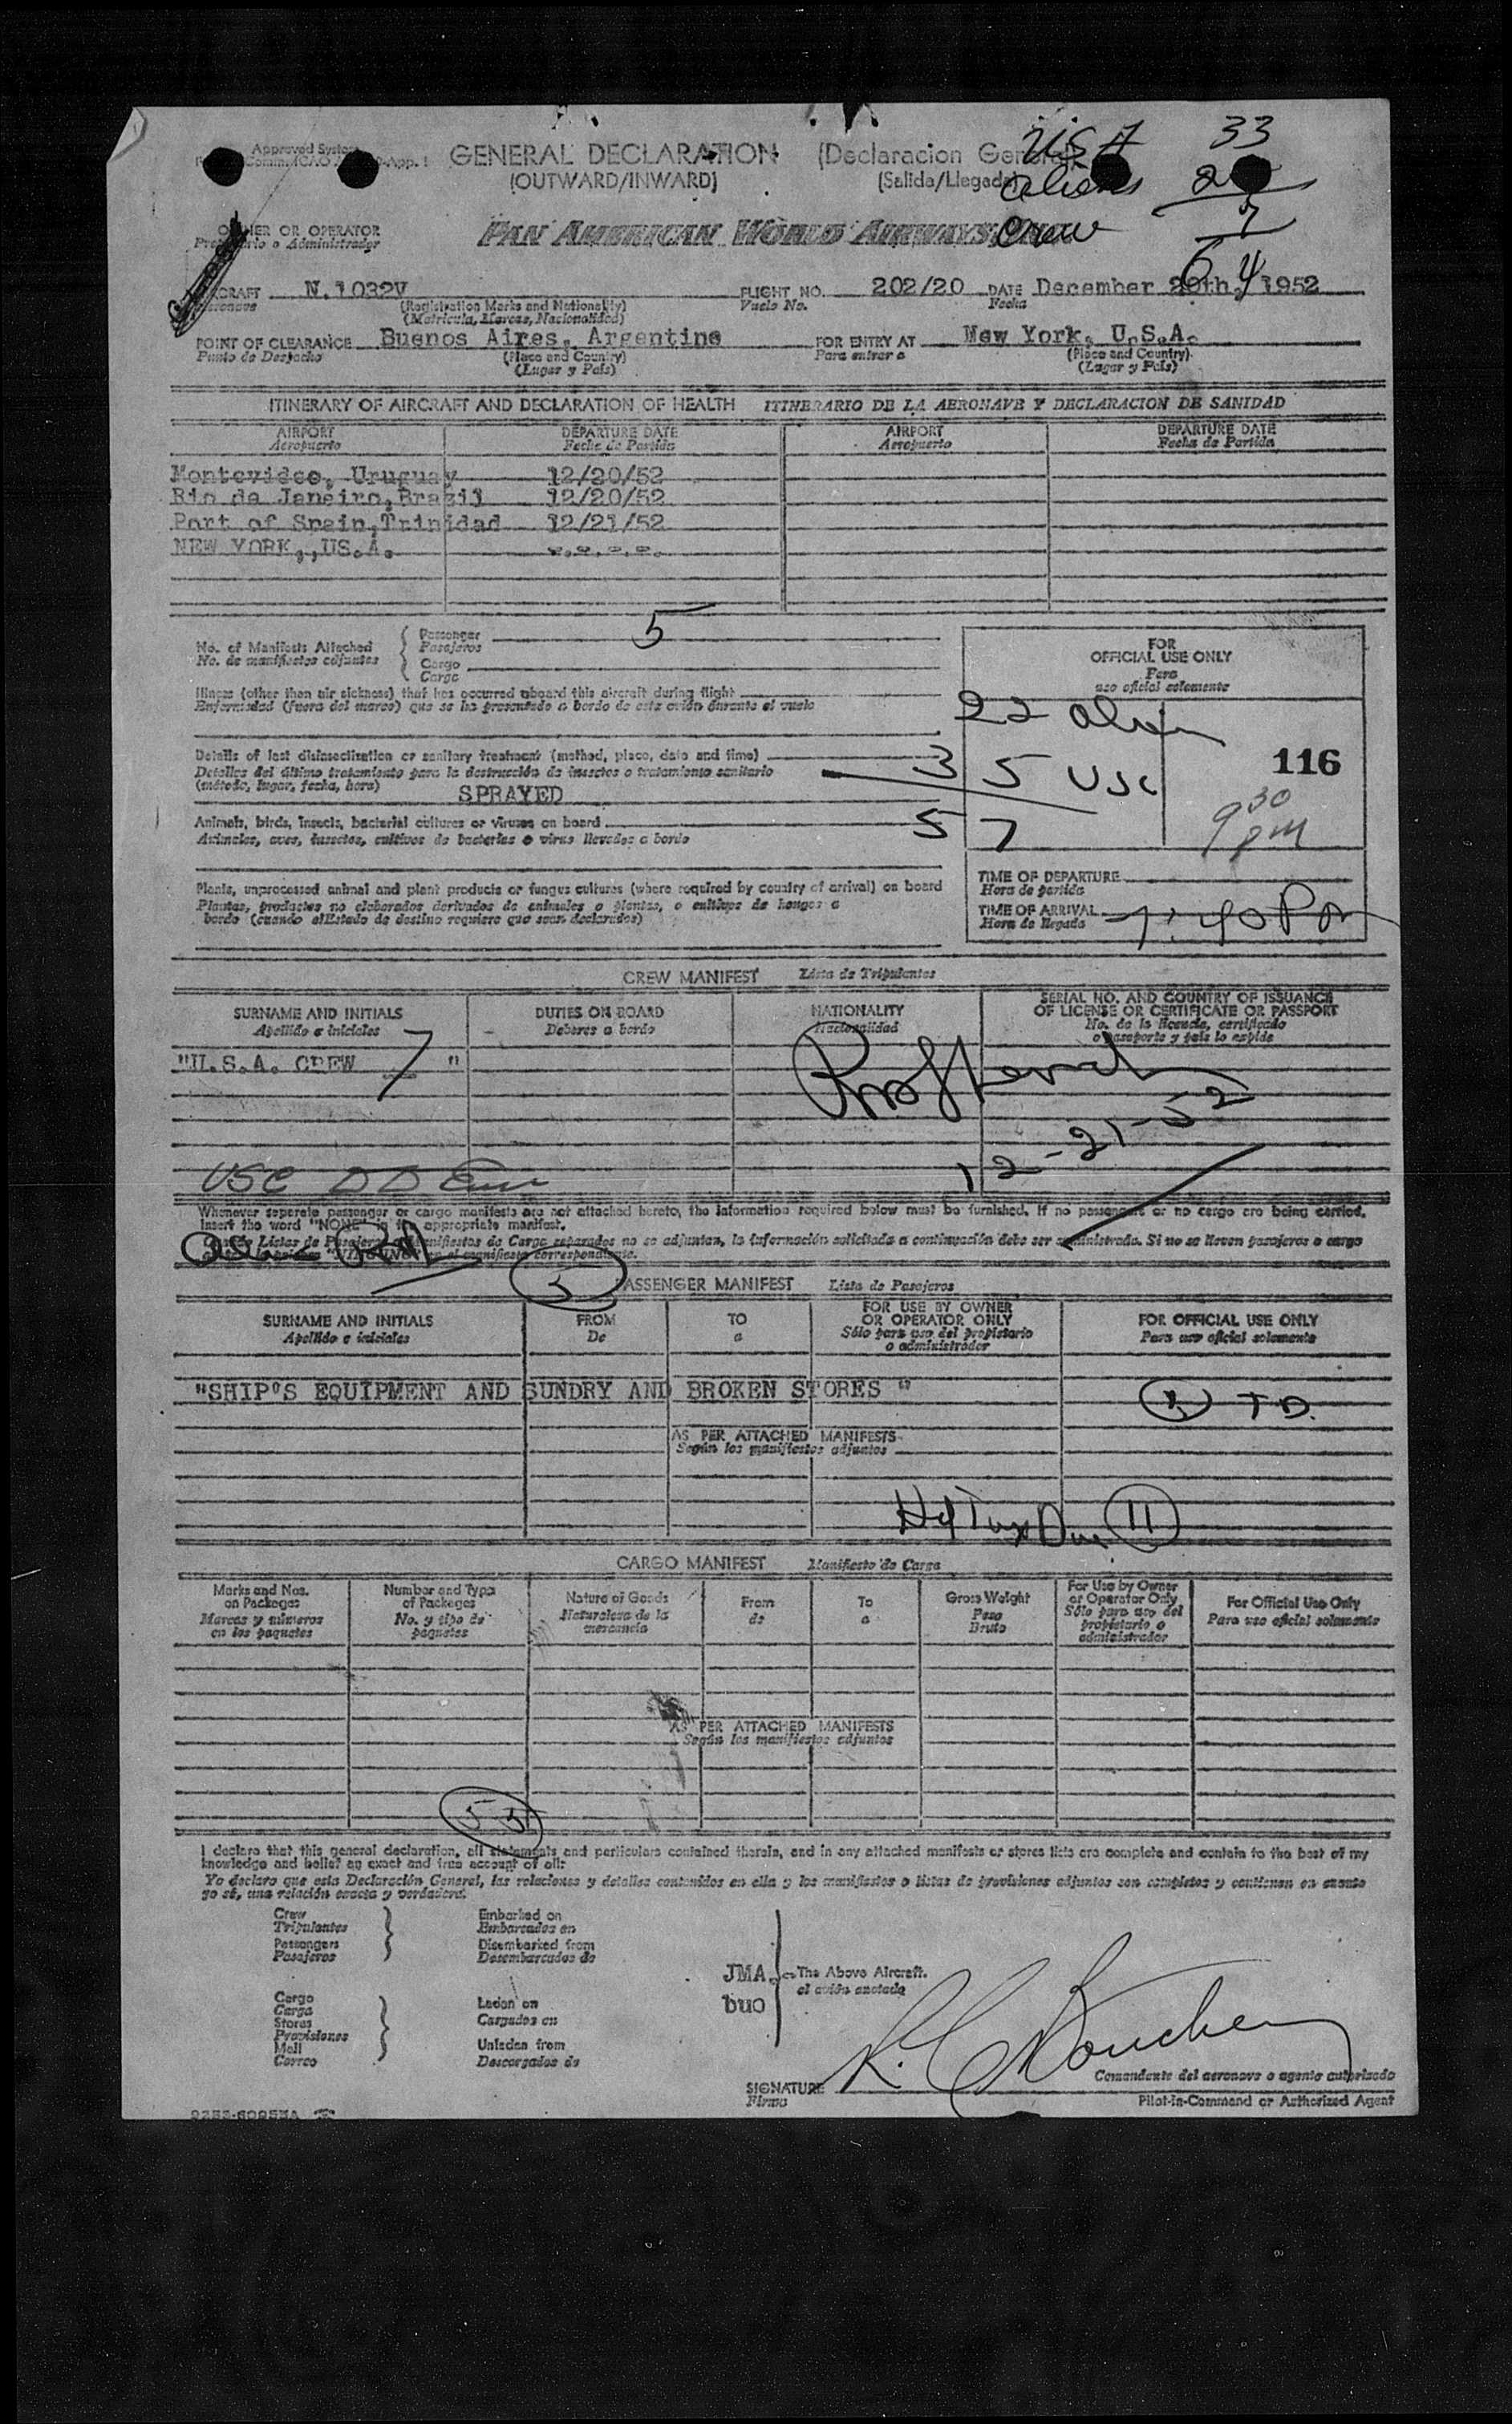 Approved System
GENERAL DECLARATION (Declaracion General)
(OUTWARD/INWARD) (Salida/Llegada)
USA 33
aliens
crew 7
64
OWNER OR OPERATOR
Propietario o Administrador
PAN AMERICAN WORLD AIRWAYS, INC.
AIRCRAFT N.1032V FLIGHT NO. 202/20 DATE December 20th, 1952
Aeronave (Registration Marks and Nationality) Vuelo No. Fecha
(Matricula, Marcas, Nacionalidad)
POINT OF CLEARANCE Buenos Aires, Argentina FOR ENTRY AT New York, U.S.A.
Punto de Despacho (Place and Country) Para entrar a (Place and Country)
(Lugar y País) (Lugar y País)
ITINERARY OF AIRCRAFT AND DECLARATION OF HEALTH ITINERARIO DE LA AERONAVE Y DECLARACION DE SANIDAD
AIRPORT DEPARTURE DATE AIRPORT DEPARTURE DATE
Aeropuerto Fecha de Partida Aeropuerto Fecha de Partida
Montevideo, Uruguay 12/20/52
Rio de Janeiro,Brazil 12/20/52
Port of Spain,Trinidad 12/21/52
NEW YORK,,US.A. -.-.-.-.
No. of Manifests Attached { Passenger 5
No. de manifiestos adjuntos Pasajeros
Cargo
Carga
FOR
OFFICIAL USE ONLY
Para
uso oficial solamente
Illness (other than air sickness) that has occurred aboard this aircraft during flight
Enfermedad (fuera del mareo) que se ha presentado a bordo de este avión durante el vuelo
22 alien
Details of last disinsectization or sanitary treatment (method, place, date and time)
Detalles del último tratamiento para la destrucción de insectos o tratamiento sanitario
(método, lugar, fecha, hora) SPRAYED
35 USC
116
57
9 30 pm
Animals, birds, insects, bacterial cultures or viruses on board
Animales, aves, insectos, cultivos de bacterias o virus llevados a bordo
Plants, unprocessed animal and plant products or fungus cultures (where required by country of arrival) on board
Plantas, productos no elaborados derivados de animales o plantas, o cultivos de hongos a
bordo (cuando el Estado de destino requiere que sean declarados)
TIME OF DEPARTURE
Hora de partida
TIME OF ARRIVAL 7:40 PM
Hora de llegada
CREW MANIFEST Lista de Tripulantes
SURNAME AND INITIALS DUTIES ON BOARD NATIONALITY SERIAL NO. AND COUNTRY OF ISSUANCE
Apellido e iniciales Deberes a bordo Nacionalidad OF LICENSE OR CERTIFICATE OR PASSPORT
No. de la licencia, certificado
o pasaporte y país lo expide
"U.S.A. CREW 7 "
12-21-52
USC
Whenever separate passenger or cargo manifests are not attached hereto, the information required below must be furnished. If no passengers or no cargo are being carried,
insert the word "NONE" in the appropriate manifest.
Cuando Listas de Pasajeros o Manifiestos de Carga separados no se adjuntan, la información solicitada a continuación debe ser suministrada. Si no se llevan pasajeros o carga
manifiesto correspondiente.
5 PASSENGER MANIFEST Lista de Pasajeros
SURNAME AND INITIALS FROM TO FOR USE BY OWNER FOR OFFICIAL USE ONLY
Apellido e iniciales De a OR OPERATOR ONLY Para uso oficial solamente
Sólo para uso del propietario
o administrador
"SHIP'S EQUIPMENT AND SUNDRY AND BROKEN STORES "
T D.
AS PER ATTACHED MANIFESTS
Según los manifiestos adjuntos
Hd Tax Due 11
CARGO MANIFEST Manifiesto de Carga
Marks and Nos. Number and Type Nature of Goods From To Gross Weight For Use by Owner For Official Use Only
on Packages of Packages Naturaleza de la de a Peso or Operator Only Para uso oficial solamente
Marcas y números No. y tipo de mercancía Bruto Sólo para uso del
en los paquetes paquetes propietario o
administrador
AS PER ATTACHED MANIFESTS
Según los manifiestos adjuntos
I declare that this general declaration, all statements and particulars contained therein, and in any attached manifests or stores lists are complete and contain to the best of my
knowledge and belief an exact and true account of all:
Yo declaro que esta Declaración General, las relaciones y detalles contenidos en ella y los manifiestos o listas de provisiones adjuntos son completos y contienen en cuanto
yo sé, una relación exacta y verdadera.
Crew Embarked on
Tripulantes Embarcados en
Passengers Disembarked from
Pasajeros Desembarcados de
JMA The Above Aircraft.
el avión anotado
buo
Cargo Laden on
Carga Cargados en
Stores
Provisiones
Mail Unladen from
Correo Descargados de
SIGNATURE
Firma
Comandante del aeronave o agente autorizado
Pilot-in-Command or Authorized Agent